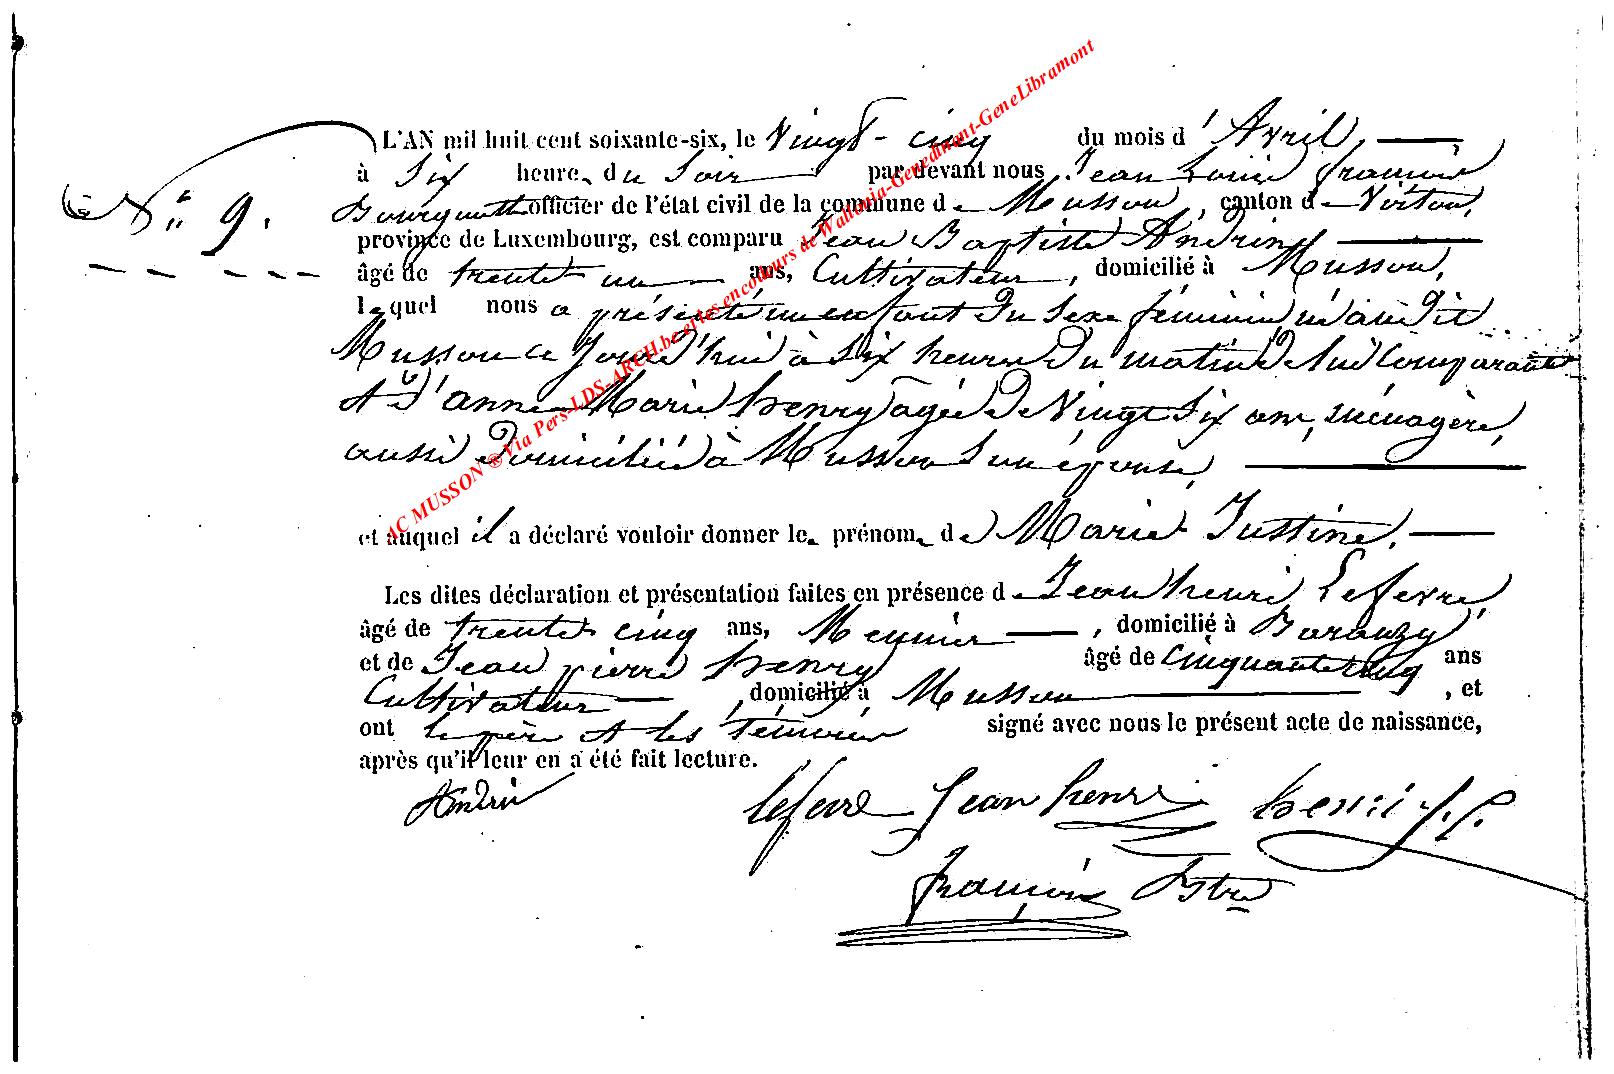 L'AN mil huit cent soixante-six, le Vingt-cinq du mois d'Avril,
à Six heure du Soir par devant nous Jean Louis François
N° 9. officier de l'état civil de la commune de Musson, canton de Virton,
province de Luxembourg, est comparu Jean Baptiste Andrin
âgé de trente un ans, Cultivateur, domicilié à Musson,
lequel nous a présenté un enfant du sexe féminin, né audit
Musson ce jourd'hui à six heures du matin de lui Comparant
et d'anne Marie henry agée de Vingt Six ans, ménagère,
aussi Domiciliée à Musson Son épouse,
et auquel il a déclaré vouloir donner le prénom de Marie Justine.
Les dites déclaration et présentation faites en présence de Jean henri Lefevre,
âgé de trente cinq ans, Meunier, domicilié à Baranzy
et de Jean pierre henry âgé de Cinquante cinq ans
Cultivateur, domicilié à Musson, et
ont le père et les témoins signé avec nous le présent acte de naissance,
après qu'il leur en a été fait lecture.
Andrin lefevre Jean henri henri J. P.
françois
AC MUSSON ® Via Pers-LDS-ARCH.be et les encodeurs de Wallonia-Genedinant-GeneLibramont